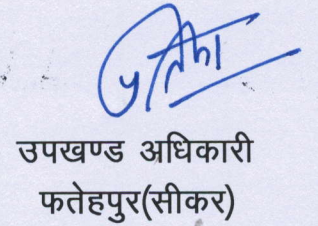 उपखण्ड अधिकारी
फतेहपुर(सीकर)